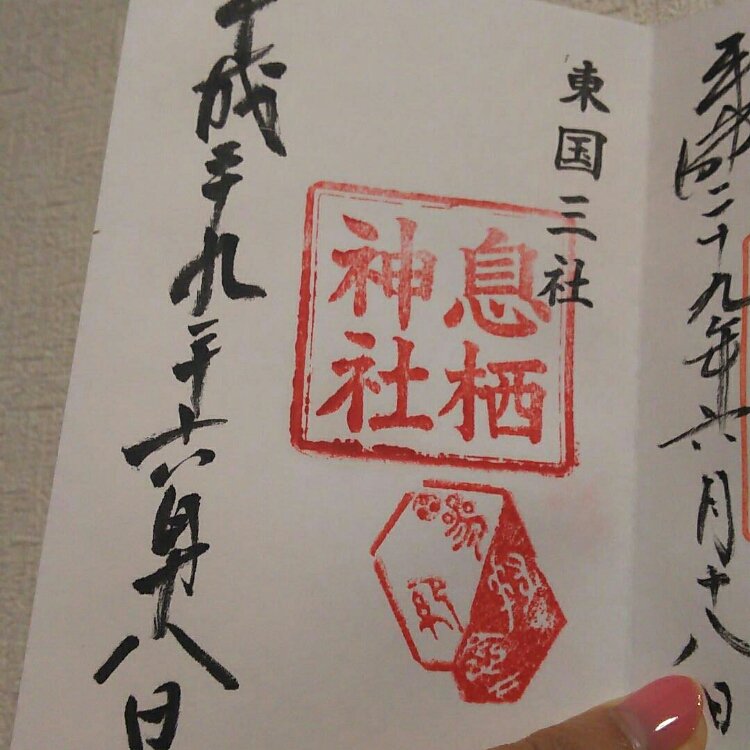 平成二十九年六月十八日
東国三社
息栖
神社
平成二十九年六月十八日